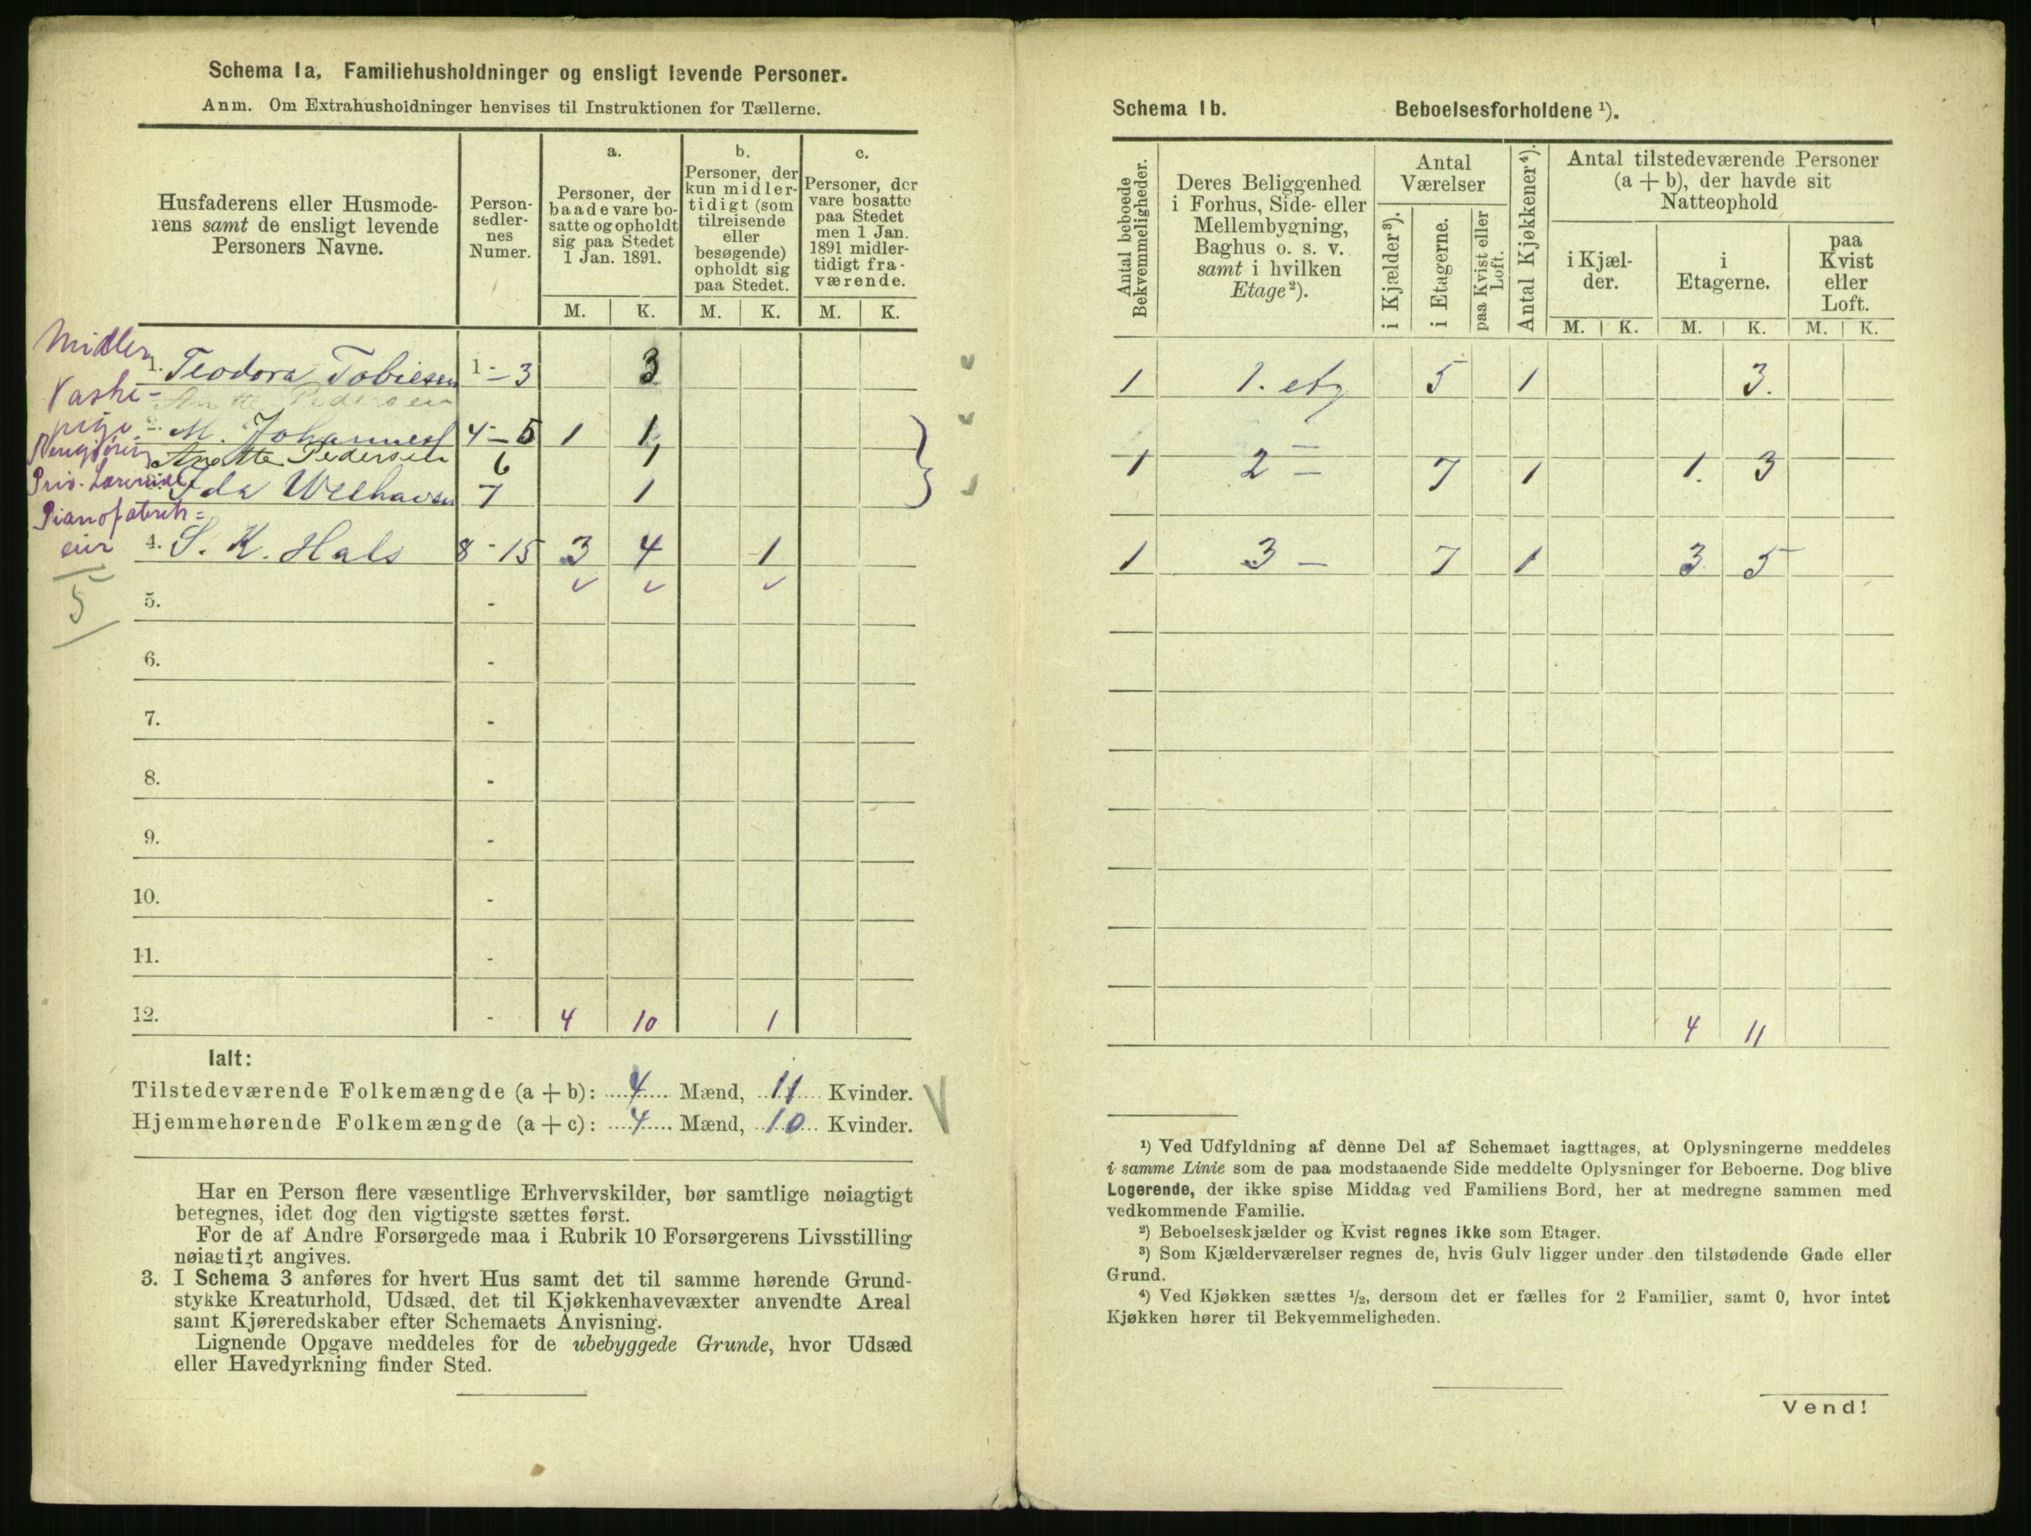 Schema 1a, Familiehusholdninger og ensligt levende Personer.
Anm. Om Extrahusholdninger henvises til Instruktionen for Tællerne.
Husfaderens eller Husmode-
rens samt de ensligt levende
Personers Navne.
Person-
sedler-
nes
Numer.
a.
Personer, der
baade vare bo-
satte og opholdt
sig paa Stedet
1 Jan. 1891.
b.
Personer, der
kun midler-
tidigt (som
tilreisende
eller
besøgende)
opholdt sig
paa Stedet.
c.
Personer, der
vare bosatte
paa Stedet
men 1 Jan.
1891 midler-
tidigt fra-
værende.
M. K. M. K. M. K.
Midler
1. Teodora Tobiesen 1 - 3 3
Vaske-
Anette Pedersen
pige
2. M. Johannes 4 - 5 1 1
Anette Pedersen 6 1
Priv. Lærerinde
3. Ida Welhaven 7 1
Pianofabrik=
eur
4. S. K. Hals 8 - 15 3 4 1
5
5. -
6. -
7. -
8. -
9. -
10. -
11. -
12. - 4 10 1
Ialt:
Tilstedeværende Folkemængde (a + b): 4 Mænd, 11 Kvinder.
Hjemmehørende Folkemængde (a + c): 4 Mænd, 10 Kvinder.
Har en Person flere væsentlige Erhvervskilder, bør samtlige nøiagtigt
betegnes, idet dog den vigtigste sættes først.
For de af Andre Forsørgede maa i Rubrik 10 Forsørgerens Livsstilling
nøiagtigt angives.
3. I Schema 3 anføres for hvert Hus samt det til samme hørende Grund-
stykke Kreaturhold, Udsæd, det til Kjøkkenhavevæxter anvendte Areal
samt Kjøreredskaber efter Schemaets Anvisning.
Lignende Opgave meddeles for de ubebyggede Grunde, hvor Udsæd
eller Havedyrkning finder Sted.
Schema 1b. Beboelsesforholdene ¹).
Antal beboede
Bekvemmeligheder.
Deres Beliggenhed
i Forhus, Side- eller
Mellembygning,
Baghus o. s. v.
samt i hvilken
Etage²).
Antal
Værelser
i Kjælder³).
i Etagerne.
paa Kvist eller
Loft.
Antal Kjøkkener⁴).
Antal tilstedeværende Personer
(a + b), der havde sit
Natteophold
i Kjæl-
der.
i
Etagerne.
paa
Kvist
eller
Loft.
M. K. M. K. M. K.
1 1. etg 5 1 3.
1 2 - 7 1 1. 3
1 3 - 7 1 3 5
4 11
¹) Ved Udfyldning af denne Del af Schemaet iagttages, at Oplysningerne meddeles
i samme Linie som de paa modstaaende Side meddelte Oplysninger for Beboerne. Dog blive
Logerende, der ikke spise Middag ved Familiens Bord, her at medregne sammen med
vedkommende Familie.
²) Beboelseskjælder og Kvist regnes ikke som Etager.
³) Som Kjælderværelser regnes de, hvis Gulv ligger under den tilstødende Gade eller
Grund.
⁴) Ved Kjøkken sættes ½, dersom det er fælles for 2 Familier, samt 0, hvor intet
Kjøkken hører til Bekvemmeligheden.
Vend!